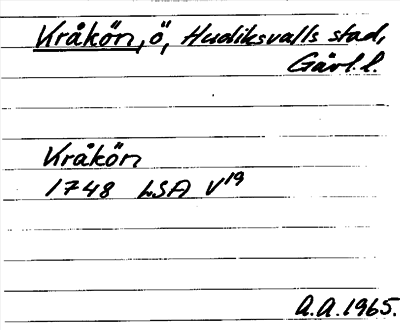 Kråkön, ö, Hudiksvalls stad,
Gävl. l.
Kråkön
1748 LSA V19
A.A. 1965.